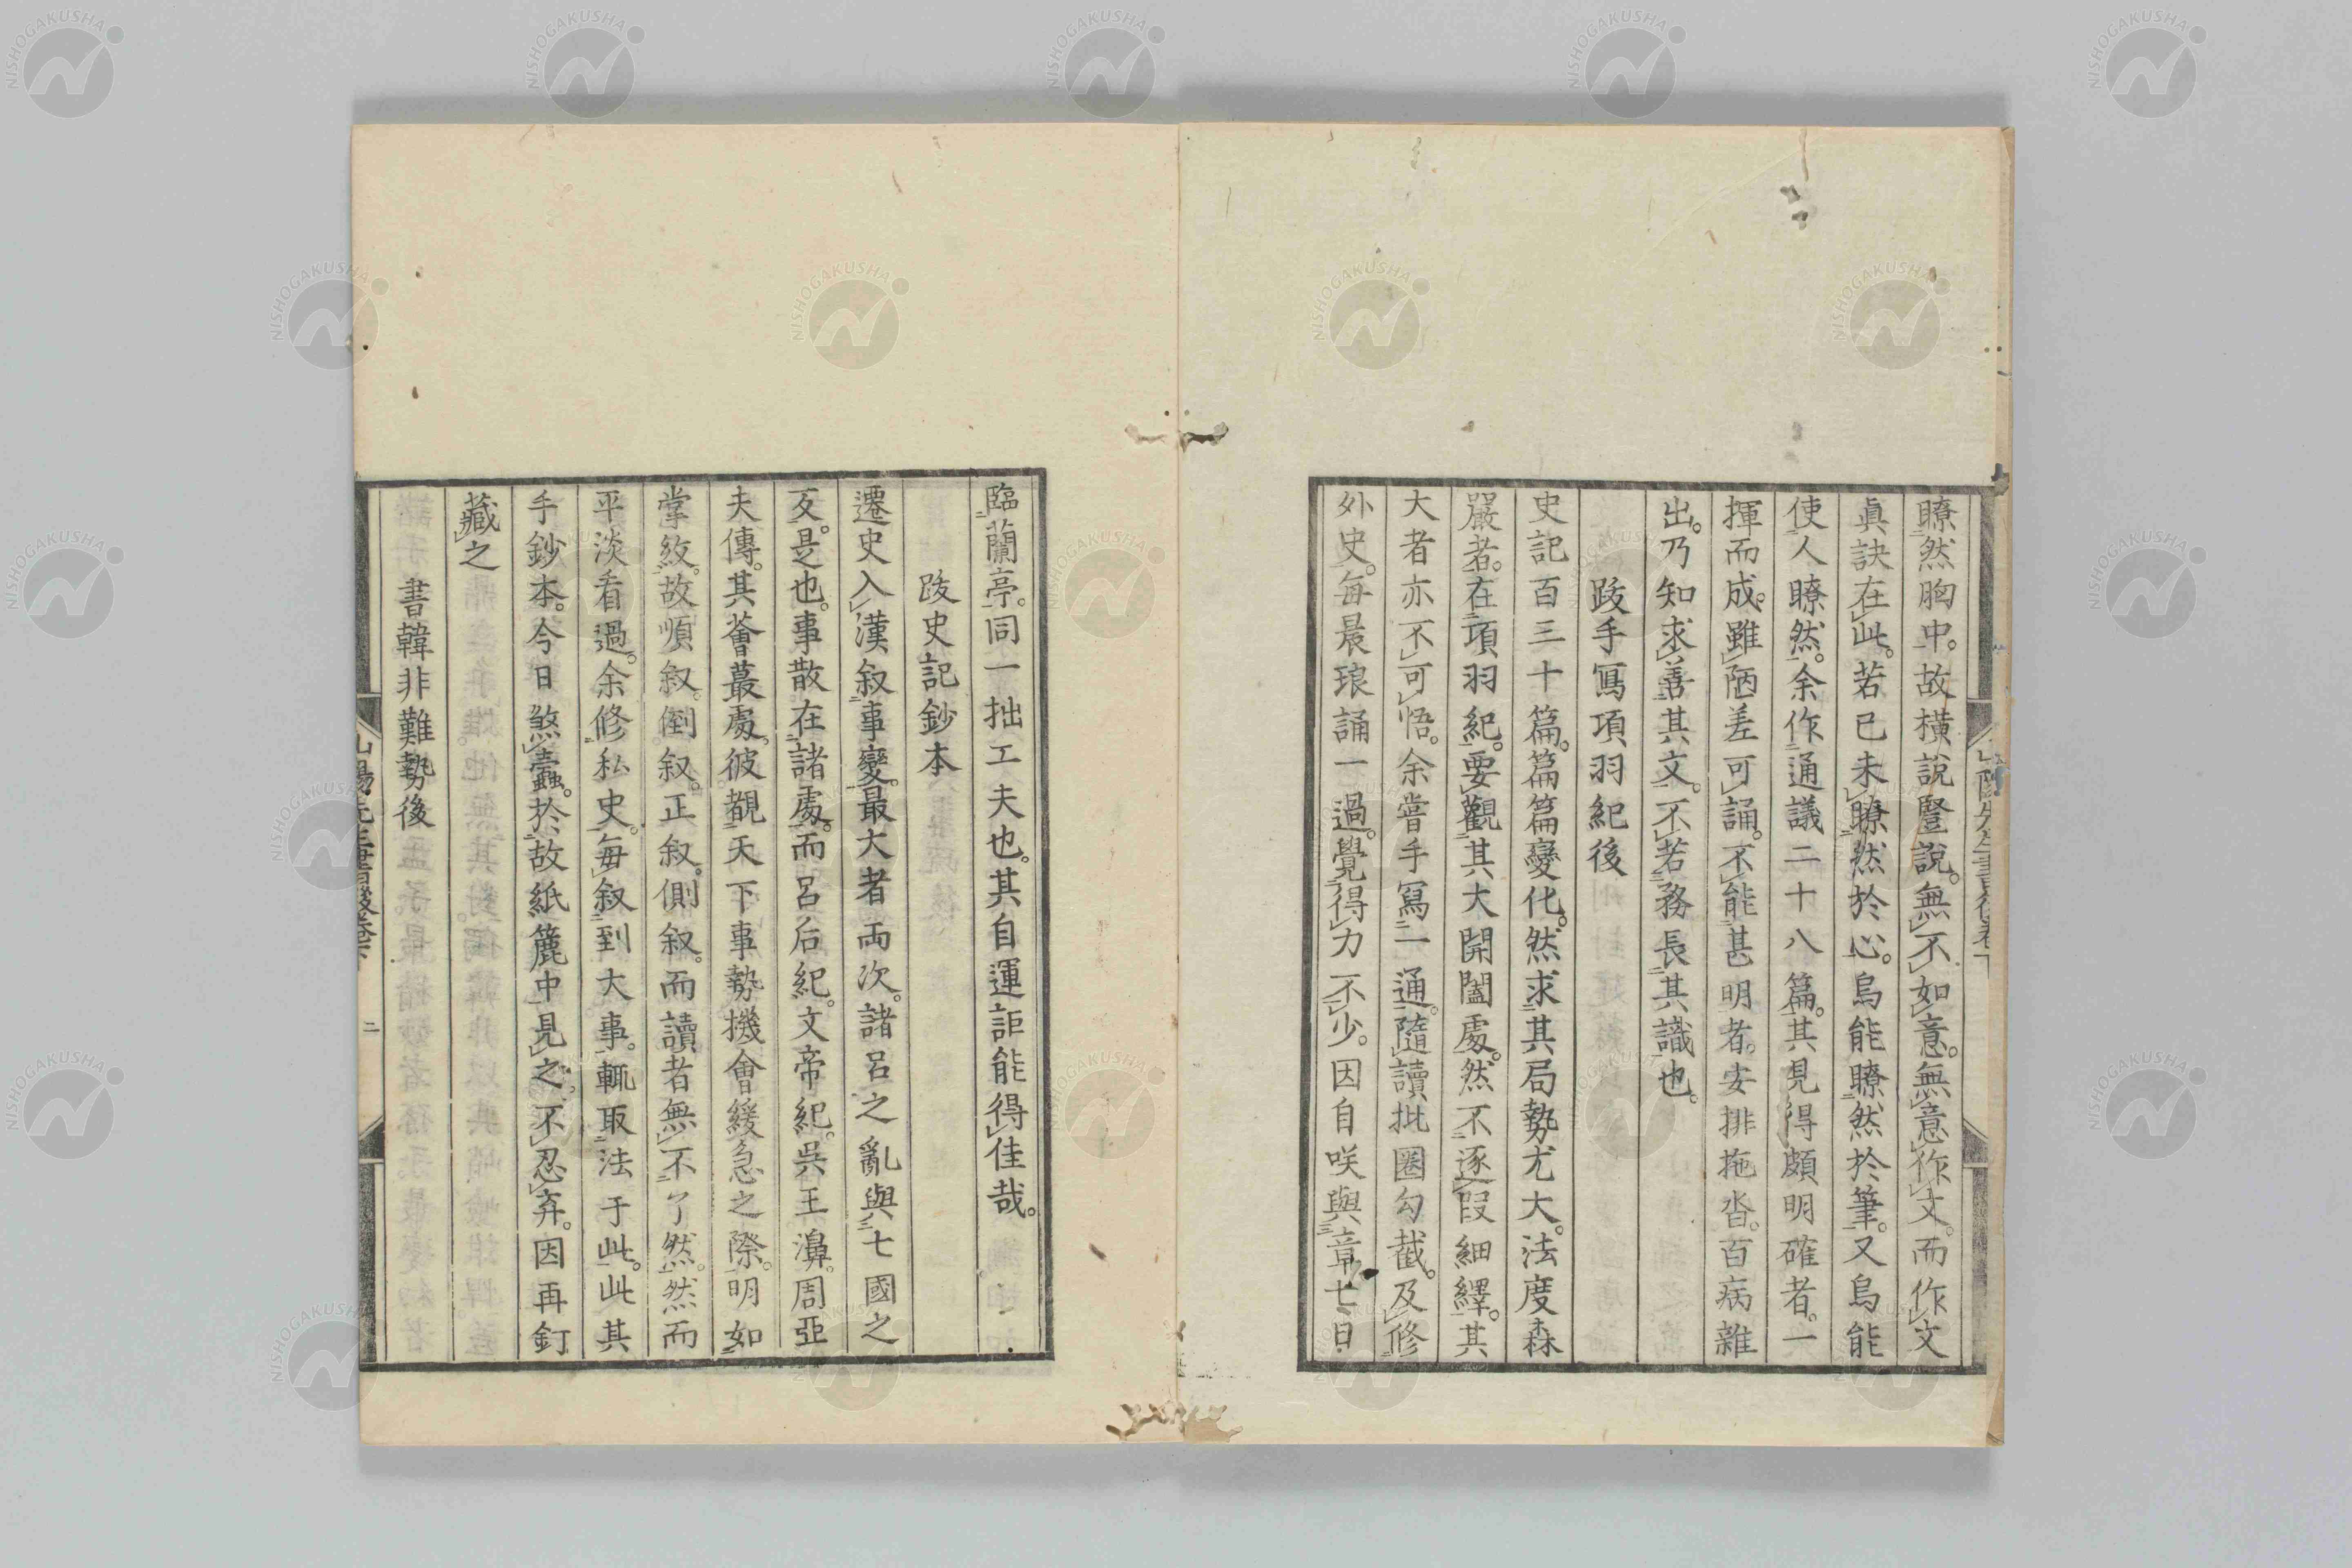 瞭然胸中。故橫說豎說。無不如意。無意作文。而作文
眞訣在此。若已未瞭然於心。烏能瞭然於筆。又烏能
使人瞭然。余作通議二十八篇。其見得頗明確者。一
揮而成。雖陋差可誦。不能甚明者。安排拖沓。百病雜
出。乃知求善其文。不若務長其識也。
跋手寫項羽紀後
史記百三十篇。篇篇變化。然求其局勢尤大。法度森
嚴者。在項羽紀。要觀其大開闔處。然不逐段細繹。其
大者亦不可悟。余嘗手寫一通。隨讀批圈勾截。及修
外史。每晨琅誦一過。覺得力不少。因自咲與章七日
臨蘭亭。同一拙工夫也。其自運詎能得佳哉。
跋史記鈔本
遷史入漢叙事變。最大者両次。諸呂之亂與七國之
反。是也。事散在諸處。而呂后紀。文帝紀。吳王濞。周亞
夫傳。其薈蕞處。彼覩天下事勢機會緩急之際。明如
掌紋。故順叙。倒叙。正叙。側叙。而讀者無不了然。然而
平淡看過。余修私史。每叙到大事。輒取法于此。此其
手鈔本。今日煞蠹。於故紙簏中見之。不忍弃。因再釘
藏之
書韓非難勢後
山陽先生書後卷下
二
NISHOGAKUSHA